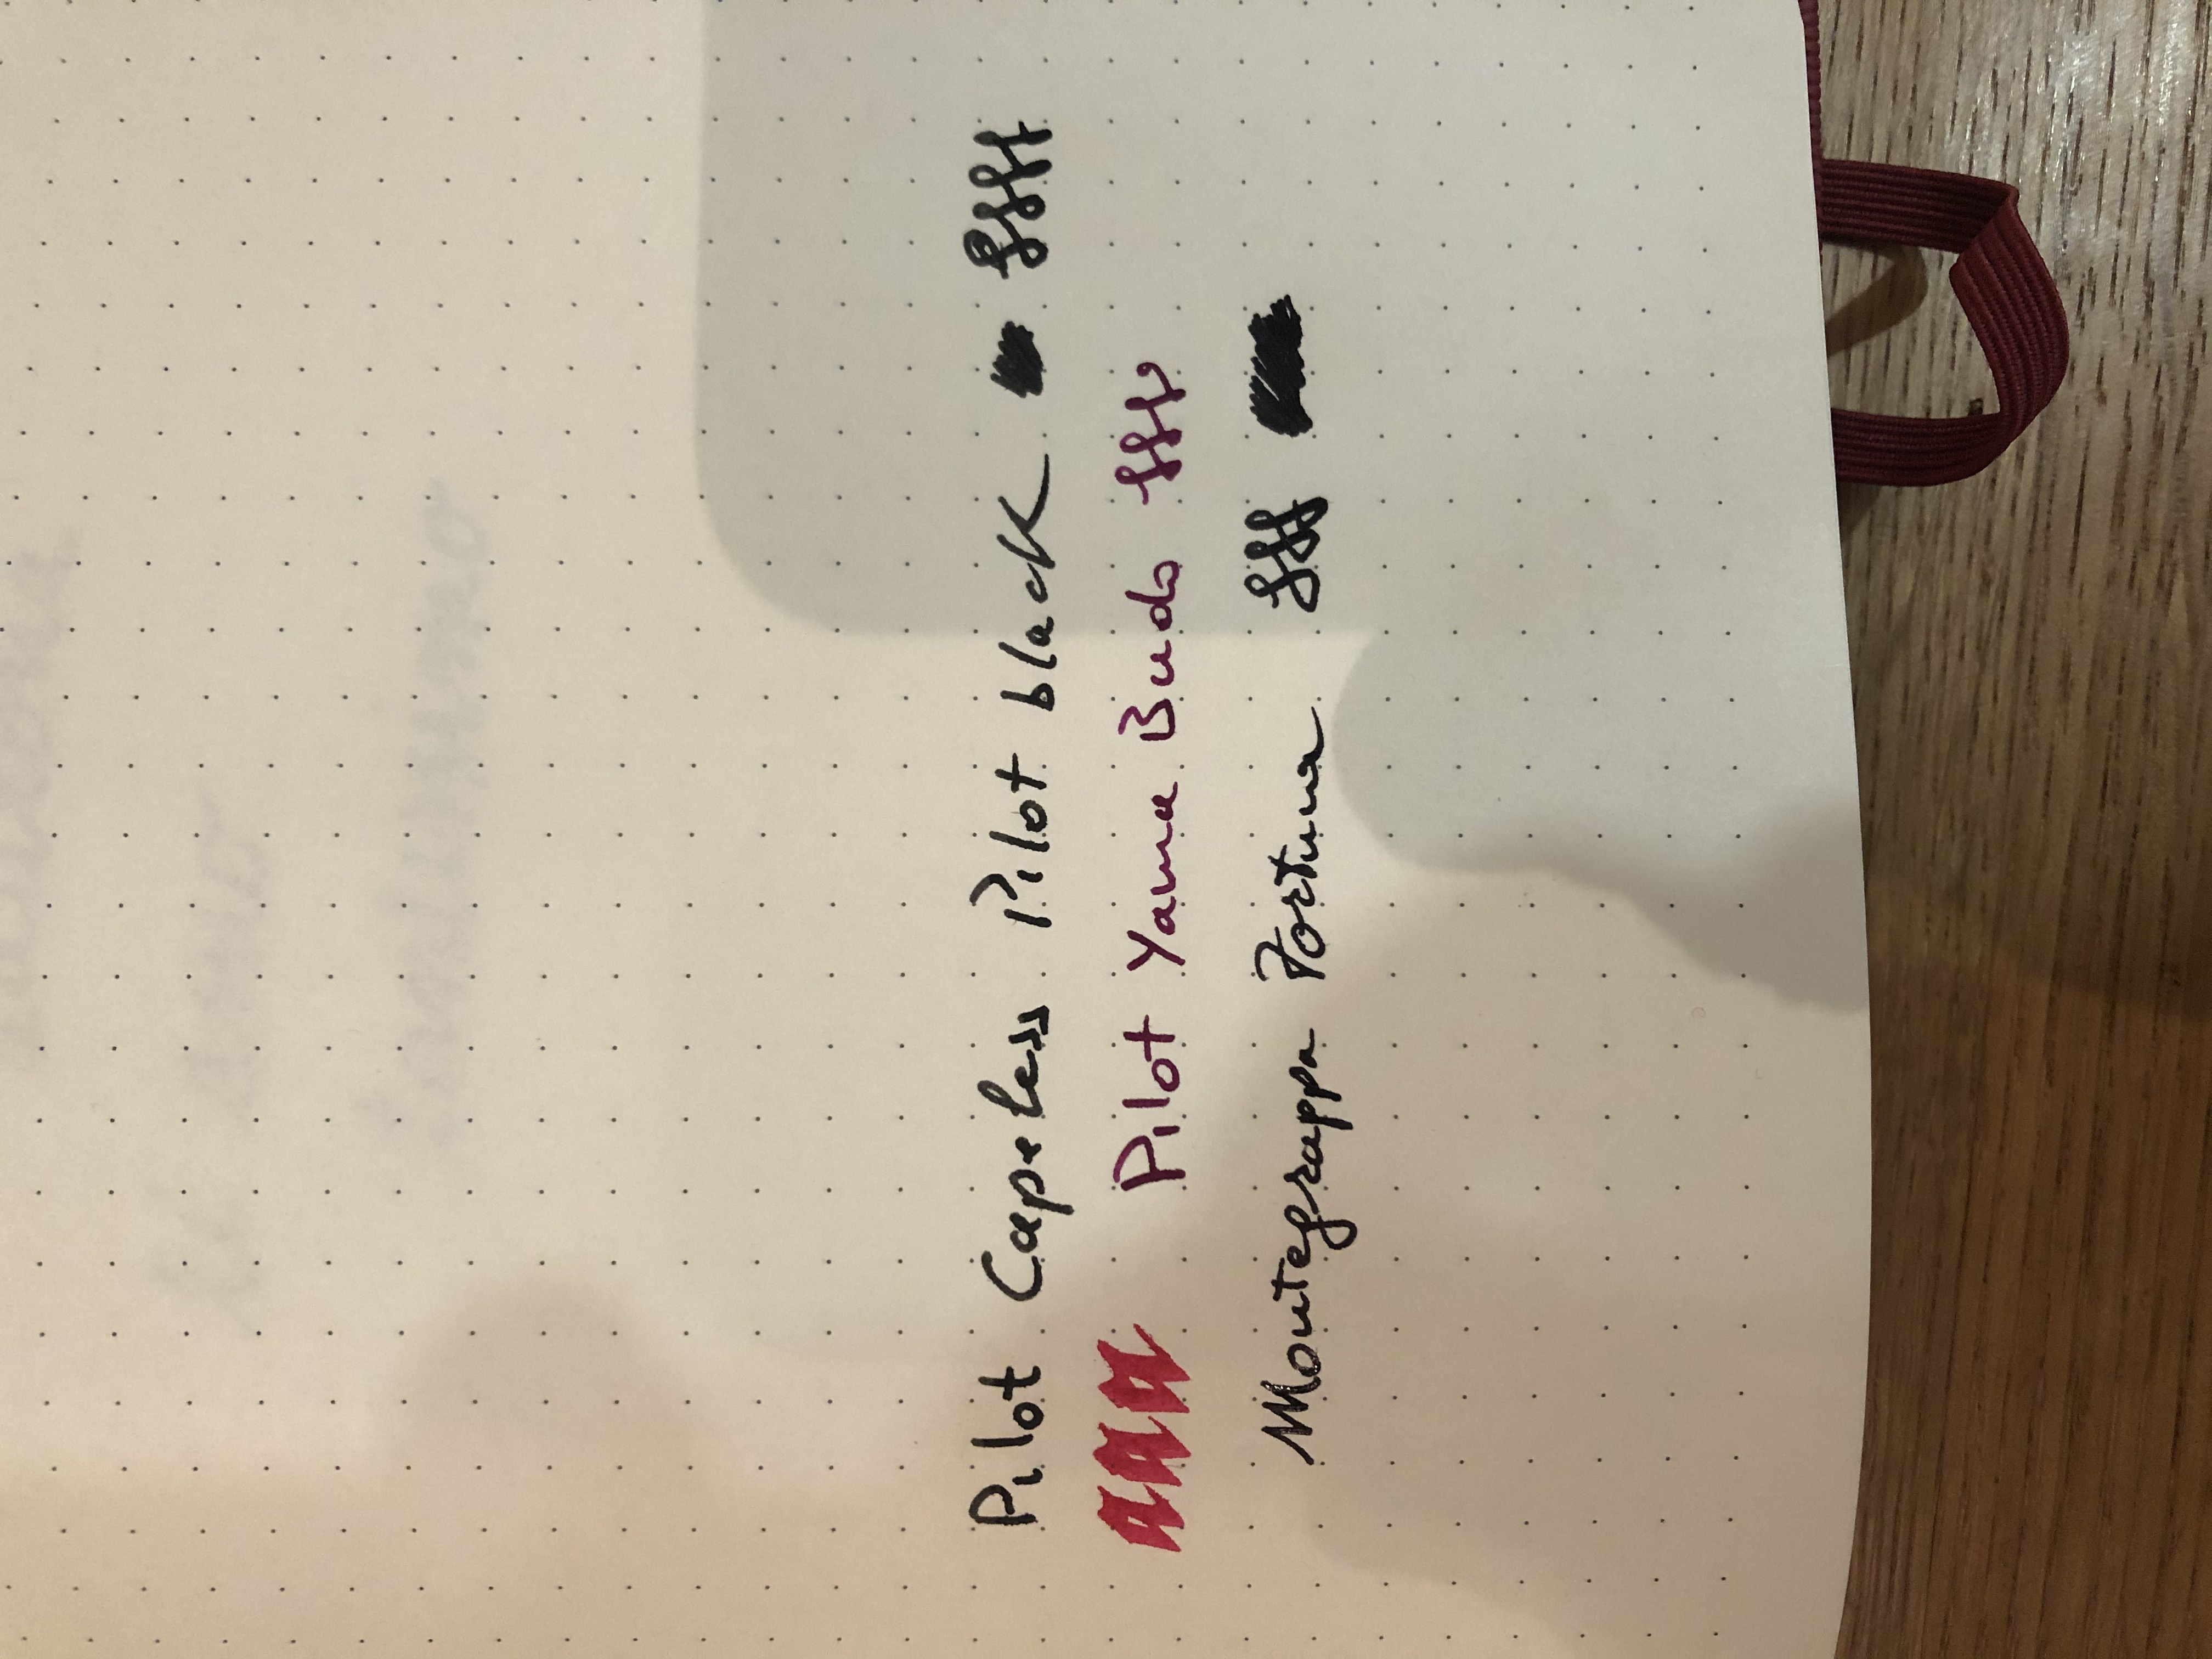 Pilot Capless Pilot black
Pilot Yama Budo
Montegrappa Fortuna